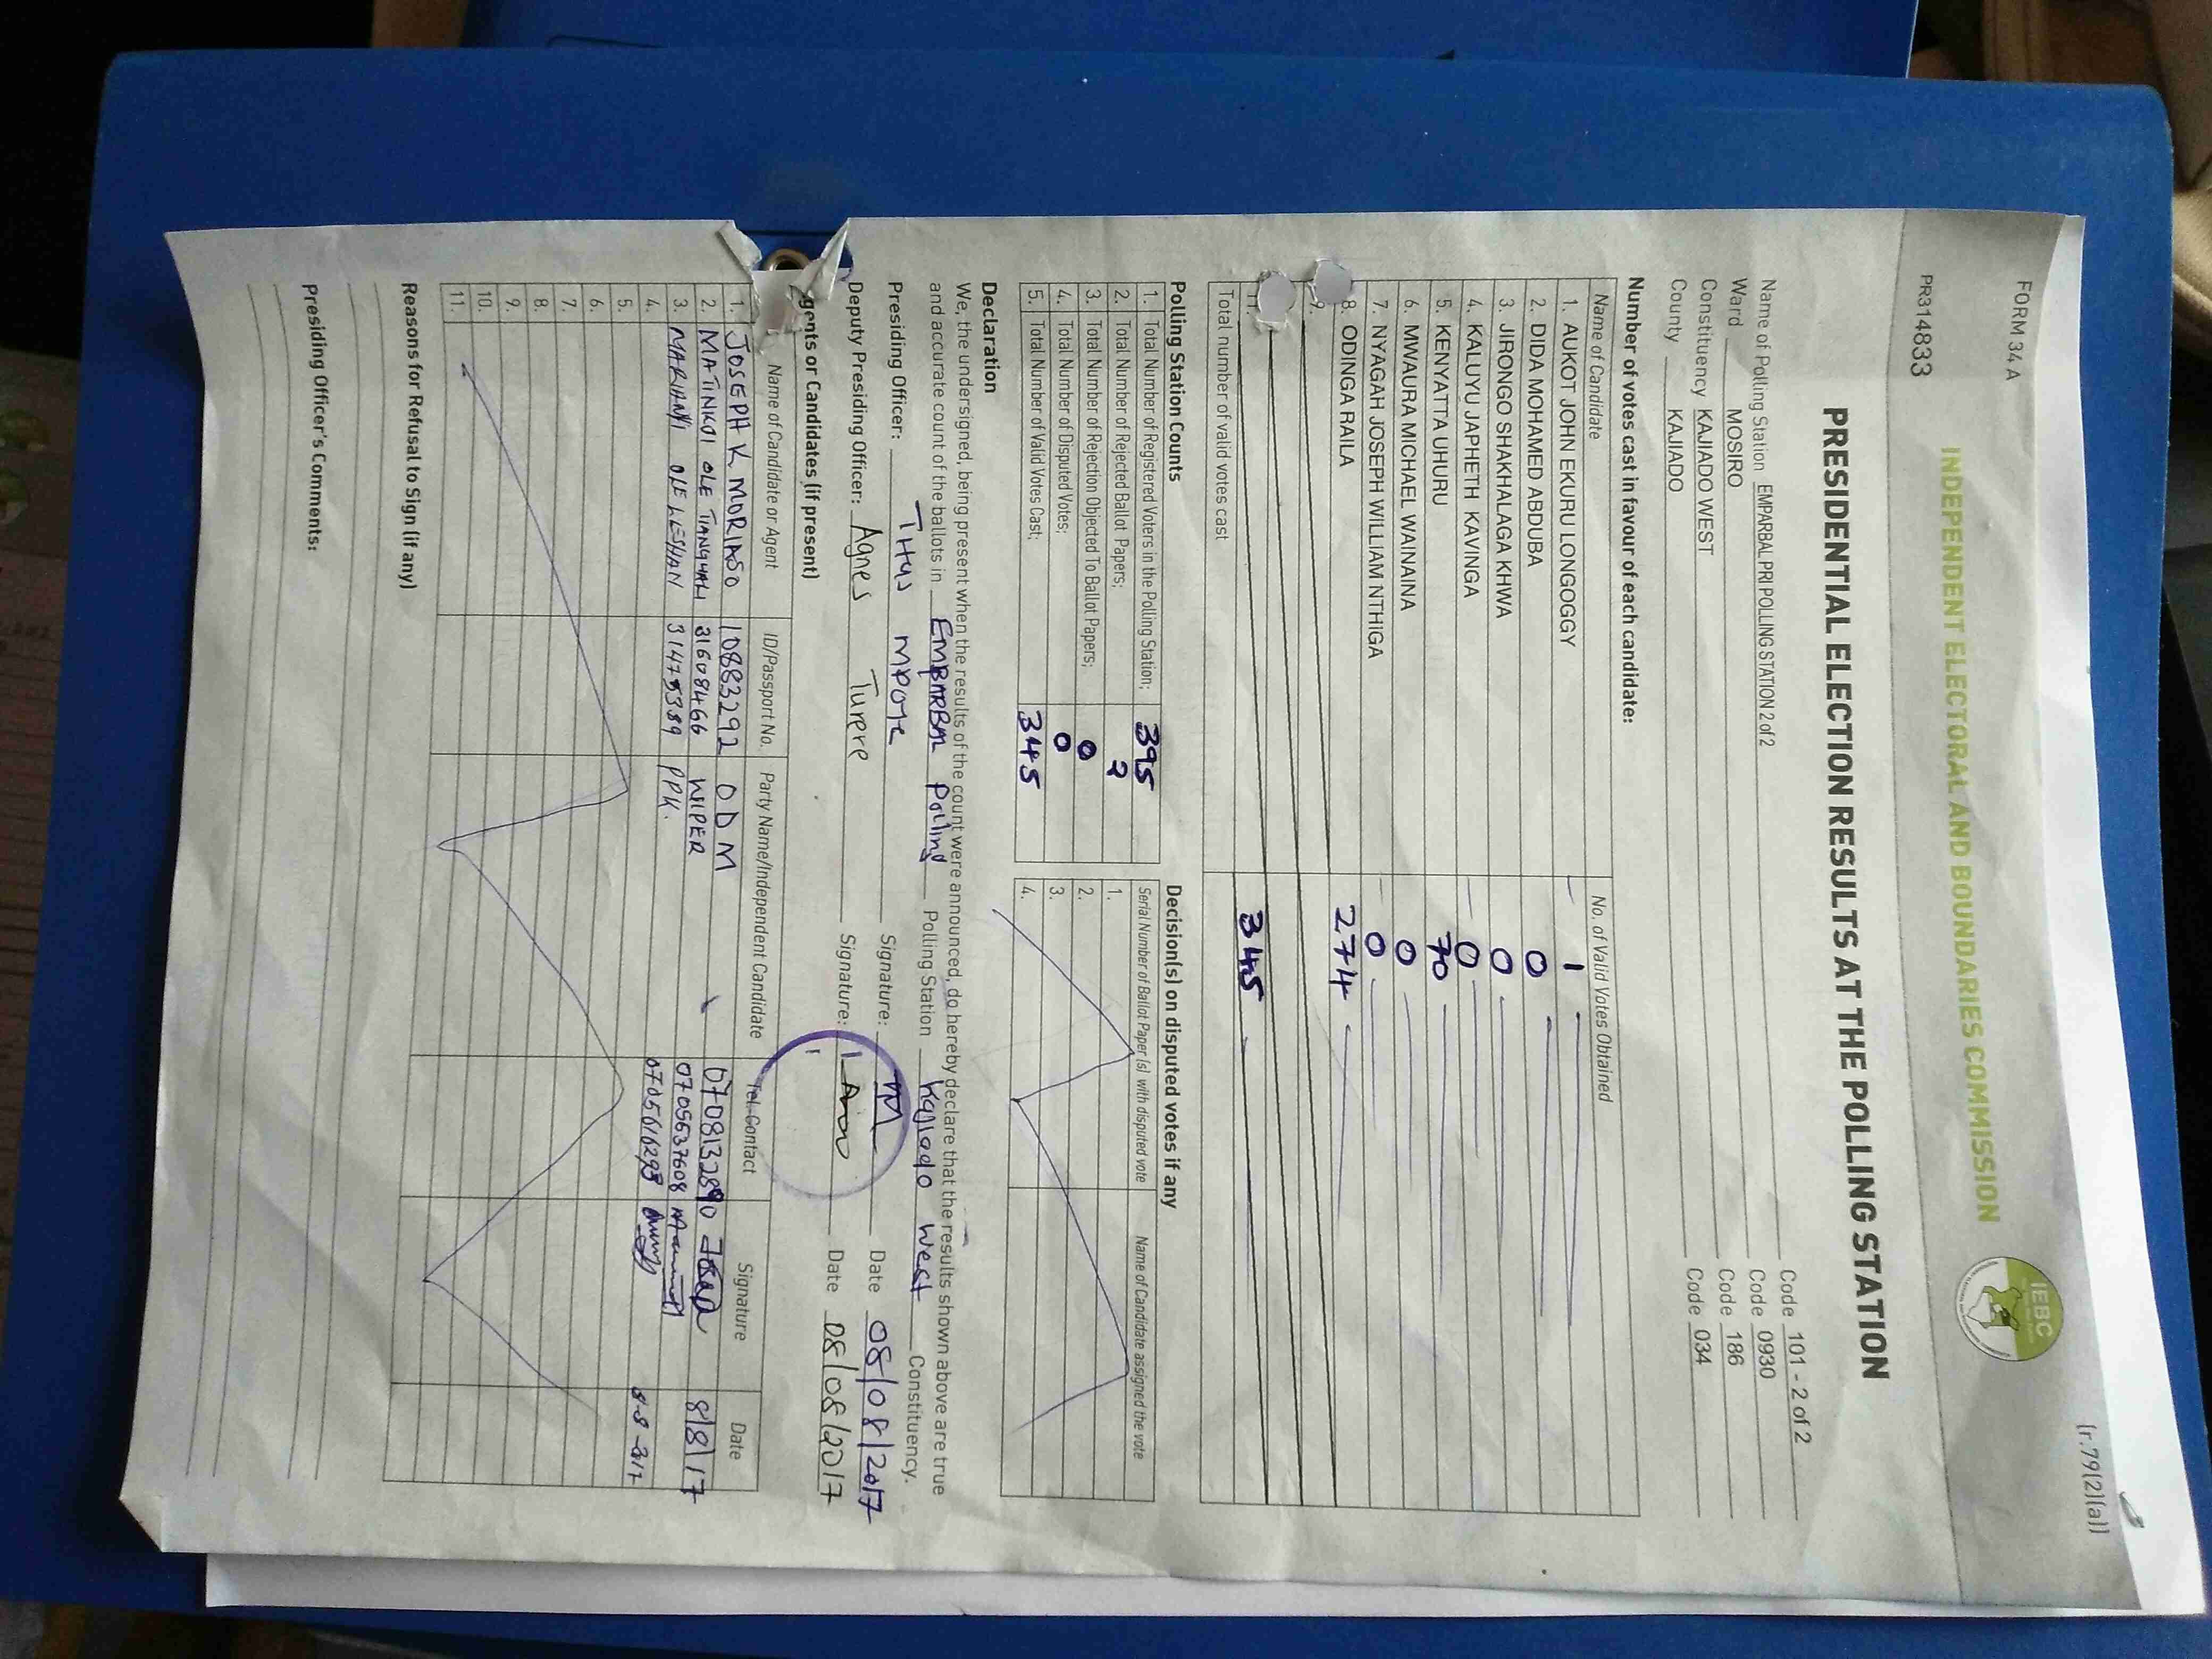 FORM 34 A
(r.79(2)(a))
INDEPENDENT ELECTORAL AND BOUNDARIES COMMISSION
IEBC
PR314833
PRESIDENTIAL ELECTION RESULTS AT THE POLLING STATION
Name of Polling Station EMPARBAL PRI POLLING STATION 2 of 2 Code 101 - 2 of 2
Ward MOSIRO Code 0930
Constituency KAJIADO WEST Code 186
County KAJIADO Code 034
Number of votes cast in favour of each candidate:
Name of Candidate No. of Valid Votes Obtained
1. AUKOT JOHN EKURU LONGOGGY 1
2. DIDA MOHAMED ABDUBA 0
3. JIRONGO SHAKHALAGA KHWA 0
4. KALUYU JAPHETH KAVINGA 0
5. KENYATTA UHURU 70
6. MWAURA MICHAEL WAINAINA 0
7. NYAGAH JOSEPH WILLIAM NTHIGA 0
8. ODINGA RAILA 274
9.
11.
Total number of valid votes cast 345
Polling Station Counts
1. Total Number of Registered Voters in the Polling Station; 395
2. Total Number of Rejected Ballot Papers; 2
3. Total Number of Rejection Objected To Ballot Papers; 0
4. Total Number of Disputed Votes; 0
5. Total Number of Valid Votes Cast; 345
Decision(s) on disputed votes if any
Serial Number of Ballot Paper (s) with disputed vote Name of Candidate assigned the vote
1.
2.
3.
4.
Declaration
We, the undersigned, being present when the results of the count were announced, do hereby declare that the results shown above are true
and accurate count of the ballots in EMPARBAL Polling Polling Station Kajiado West Constituency.
Presiding Officer: Signature: Date 08/08/2017
Deputy Presiding Officer: Agnes Turere Signature: Date 08/08/2017
gents or Candidates (if present)
Name of Candidate or Agent ID/Passport No. Party Name/Independent Candidate Tel. Contact Signature Date
1. JOSEPH K MORIASO 10883292 ODM 0708132890 8/8/17
2. MATINKOI OLE 31608466 WIPER 0705637608
3. OLE LESHAN PPK. 8-8-2017
4.
5.
6.
7.
8.
9.
10.
11.
Reasons for Refusal to Sign (if any)
Presiding Officer's Comments: